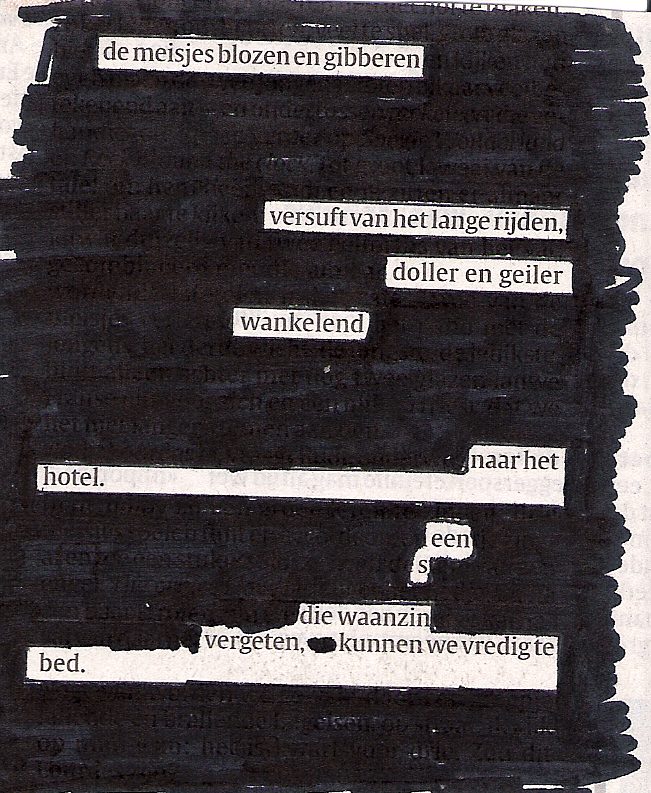 de meisjes blozen en gibberen
versuft van het lange rijden,
doller en geiler
wankelend
naar het
hotel.
een
s
die waanzin
vergeten, kunnen we vredig te
bed.